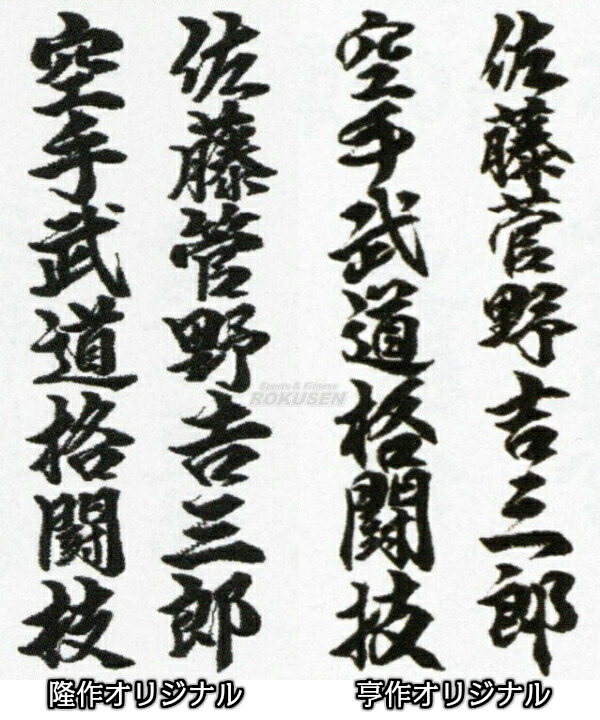 佐藤管野吉三郎
空手武道格闘技
隆作オリジナル
佐藤菅野吉三郎
空手武道格闘技
亨作オリジナル
Sports & Fitness
ROKUSEN